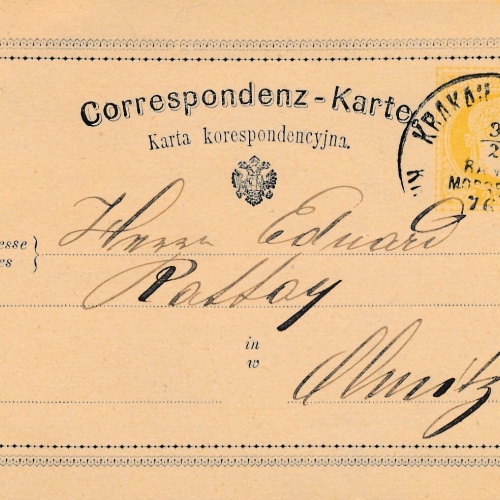 Correspondenz-Karte
Karta korespondencyjna.
KRAKAU
3
2
BA
MORG
76
esse
es
Herrn Eduard
Rattay
in
w
Olmütz